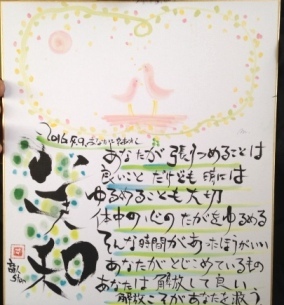 2016.5.9
あなたが張りつめることは
良いことだけども時には
ゆるめることも大切
体中の心のたがをゆるめる
そんな時間があったほうがいい
あなたがとじこめているもの
あなたは解放して良い
解放こそがあなたを救う